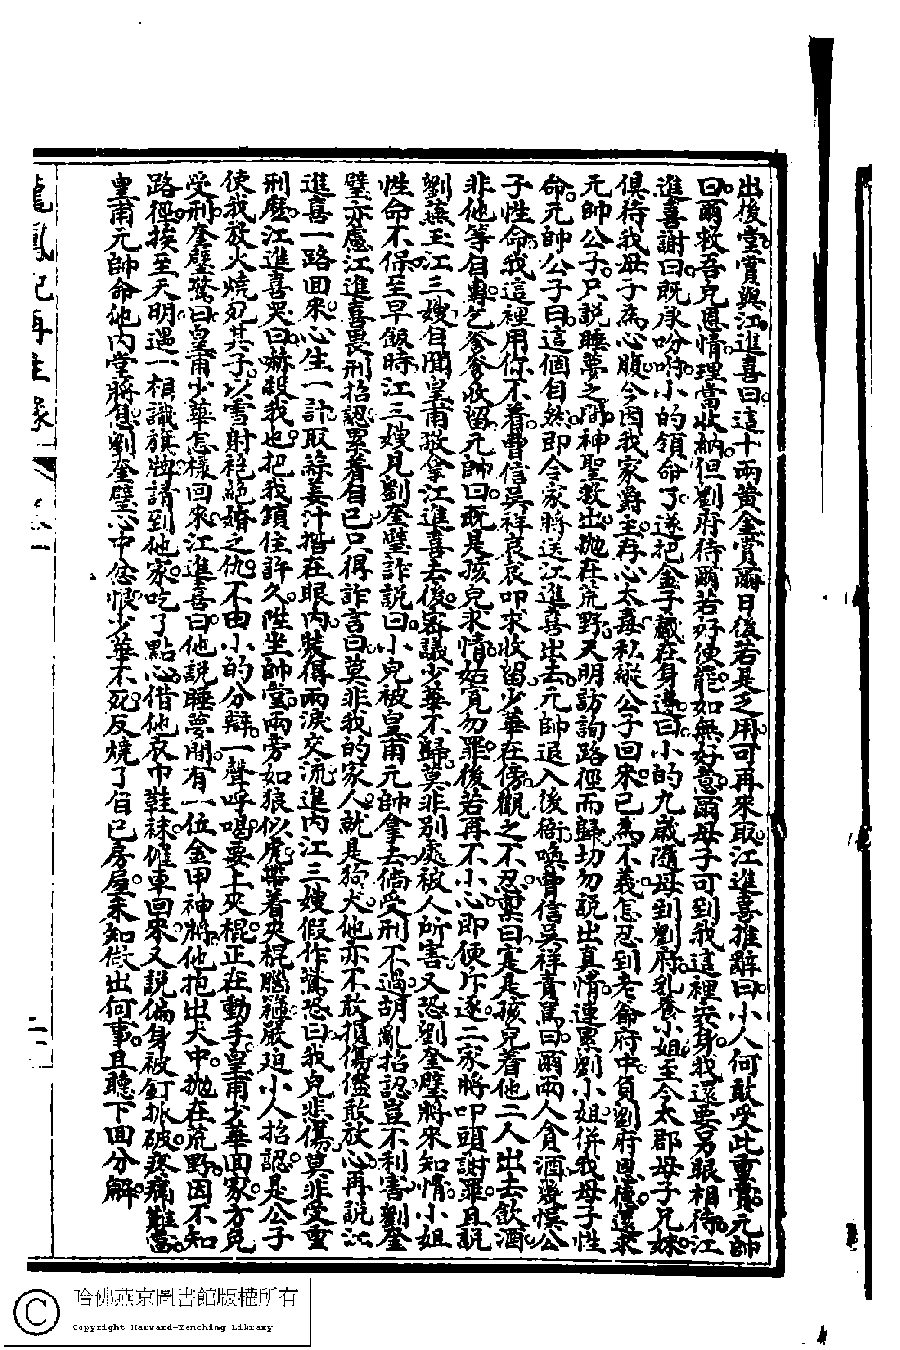 出後堂賞與江進喜曰這十兩黃金賞爾日後若是乏用可再來取江進喜推辭曰小人何敢受此重賞元帥
曰爾救吾兒恩情理當收納但劉府待爾若好便罷如無好意爾母子可到我這裡安身我還要另眼相待江
進喜謝曰既承吩咐小的領命了遂把金子藏在身邊曰小的九歲隨母到劉府乳養小姐至今太郡母子兄妹
俱待我母子為心腹今因我家爵主存心太毒私縱公子回來已為不義怎忍到老爺府中負劉府恩德還求
元帥公子只說睡夢之間神聖救出拋在荒野天明訪詢路徑而歸切勿說出真情連累劉小姐併我母子性
命元帥公子曰這個自然即令家將送江進喜出去元帥退入後衙喚曹信吳祥責罵曰爾兩人貪酒幾悞公
子性命我這裡用你不着曹信吳祥哀哀叩求收留少華在傍觀之不忍稟曰寔是孩兒着他二人出去飲酒
非他等自專乞爹爹收留元帥曰既是孩兒求情姑寬勿罪後若再不小心即便斥逐二家將叩頭謝罪且說
劉燕玉江三嫂自聞皇甫敬拿江進喜去後密議少華不歸莫非別處被人所害又恐劉奎璧將來知情小姐
性命不保至早飯時江三嫂見劉奎璧詐說曰小兒被皇甫元帥拿去倘受刑不過胡亂招認豈不利害劉奎
璧亦慮江進喜畏刑招認累着自己只得詐言曰莫非我的家人就是狗犬他亦不敢損傷儘敢放心再說江
進喜一路回來心生一計取綠姜汁揩在眼內裝得兩淚交流進內江三嫂假作驚恐曰我兒悲傷莫非受重
刑麼江進喜哭曰嚇殺我也把我鎖住許久陞坐帥堂兩旁如狼似虎帶着夾棍腦箍嚴迫小人招認是公子
使我放火燒死其子以雪射袍絕婚之仇不由小的分辯一聲呼喝要上夾棍正在動手皇甫少華回家方免
受刑奎璧驚曰皇甫少華怎樣回來江進喜曰他說睡夢間有一位金甲神將他抱出火中拋在荒野因不知
路徑挨至天明遇一相識旗牌請到他家吃了點心借他衣巾鞋襪催車回來又說偏身被釘抓破疼痛難當
皇甫元帥命他內堂將息劉奎璧心中忿恨少華不死反燒了自己房屋未知做出何事且聽下回分解
龍鳳配再生緣 卷之一
哈佛燕京圖書館版權所有
Copyright Harvard-Yenching Library